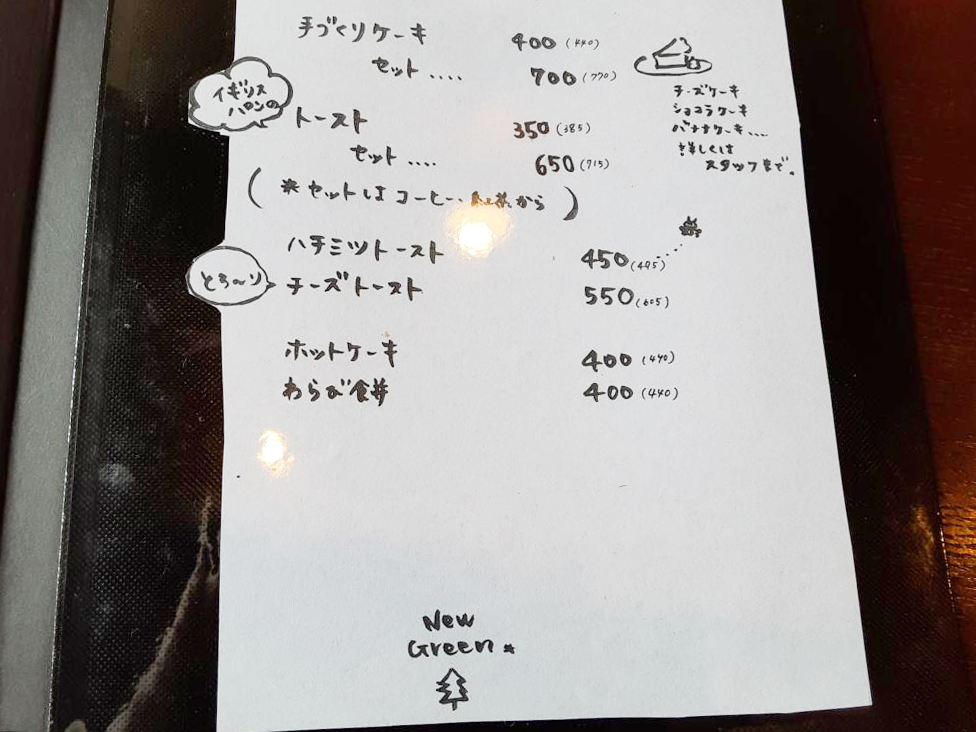 手づくりケーキ 400 (440)
セット .... 700 (770)
チーズケーキ
ショコラケーキ
バナナケーキ....
詳しくは
スタッフまで。
イギリス
パンの
トースト 350 (385)
セット .... 650 (715)
(*セットはコーヒー・紅茶から)
ハチミツトースト 450 (495)
とろ〜り
チーズトースト 550 (605)
ホットケーキ 400 (440)
わらび餅 400 (440)
New
Green*